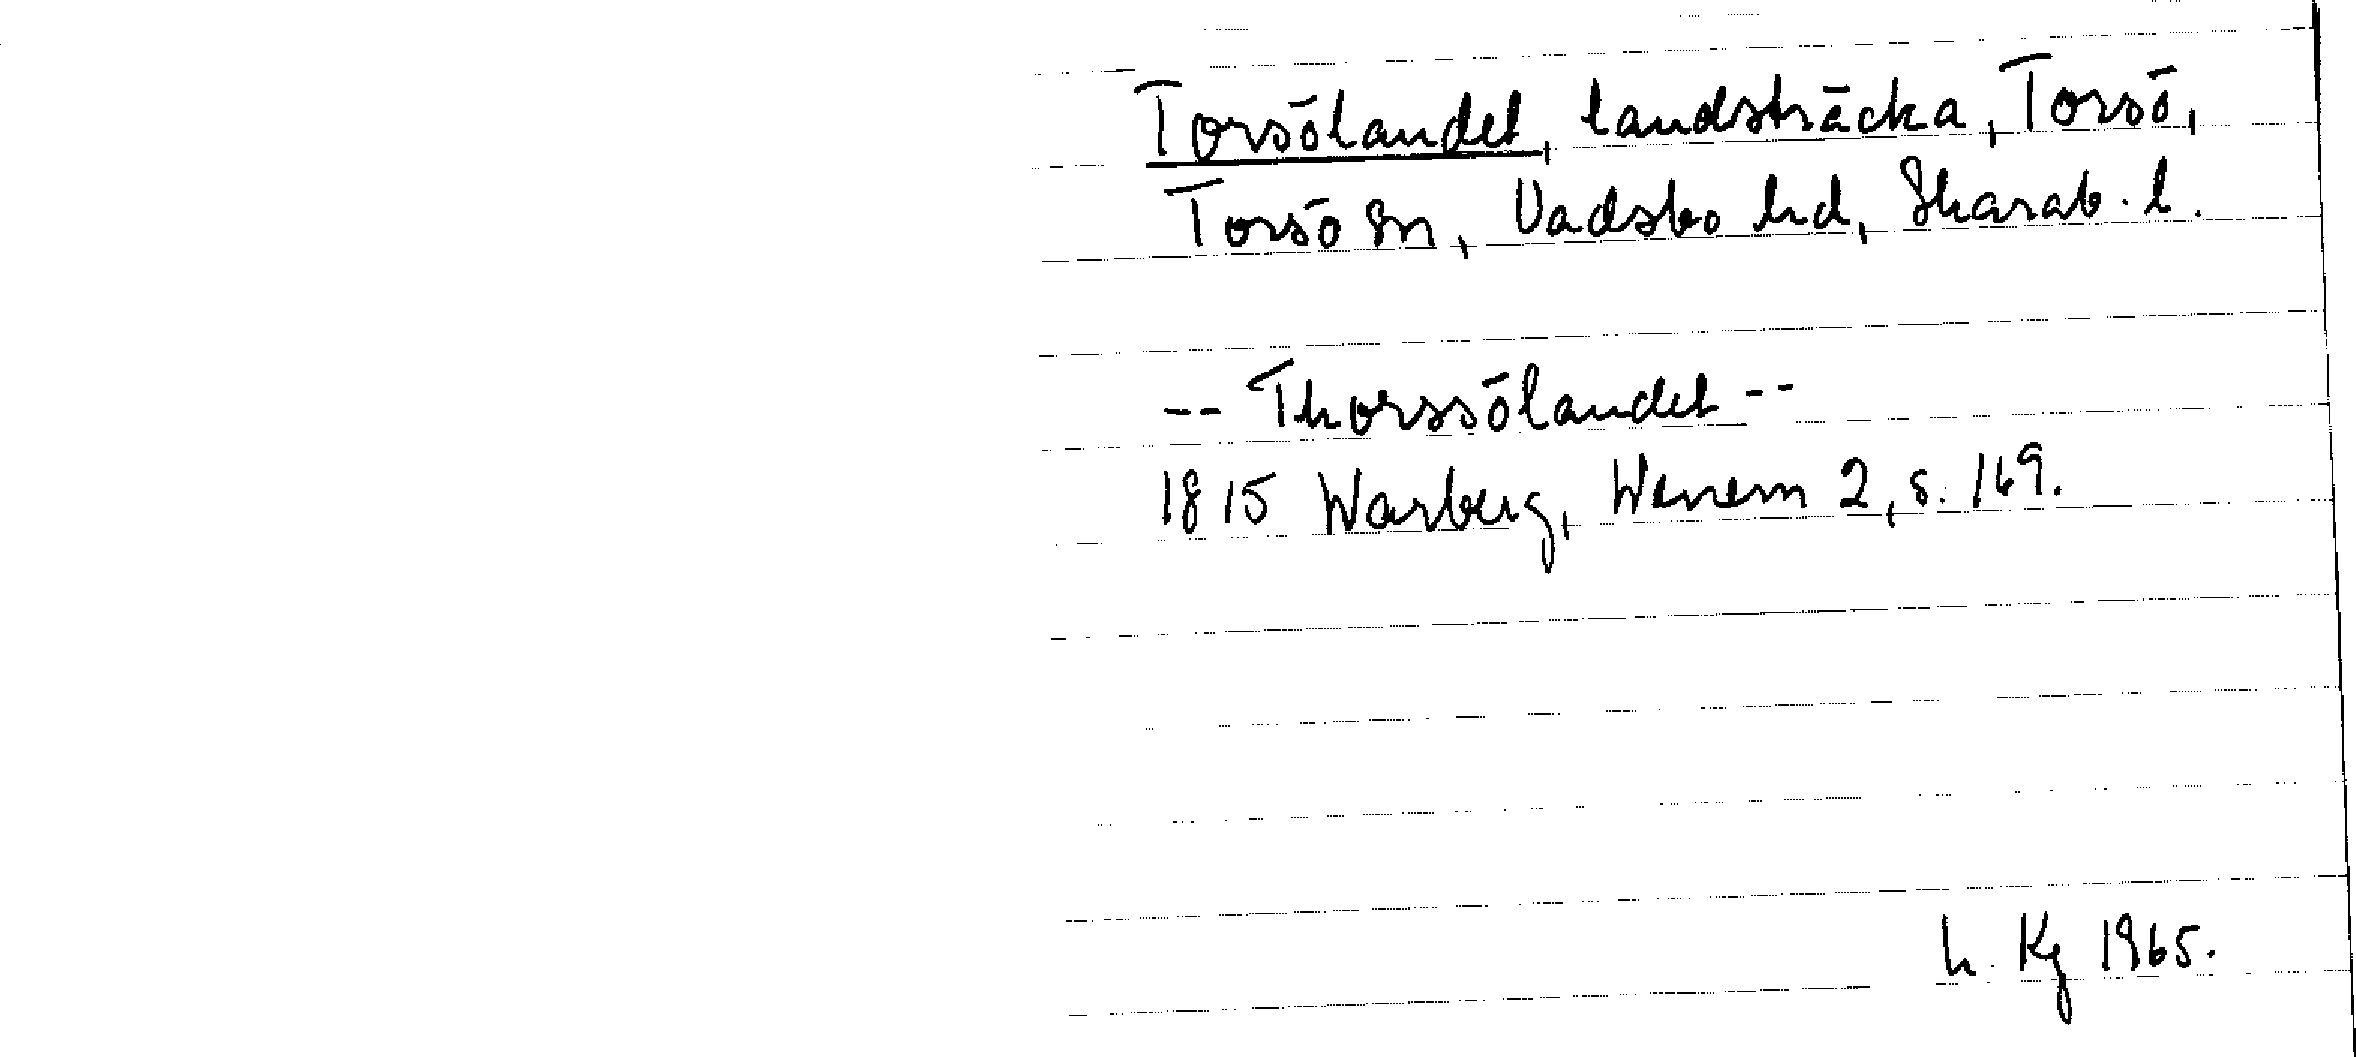 Torsölandet, landsträcka, Torsö,
Torsö sn, Vadsbo hd, Skarab. l.
-- Thorssölandet --
1815 Warberg, Wenern 2, s. 169.
h. Kg 1965.